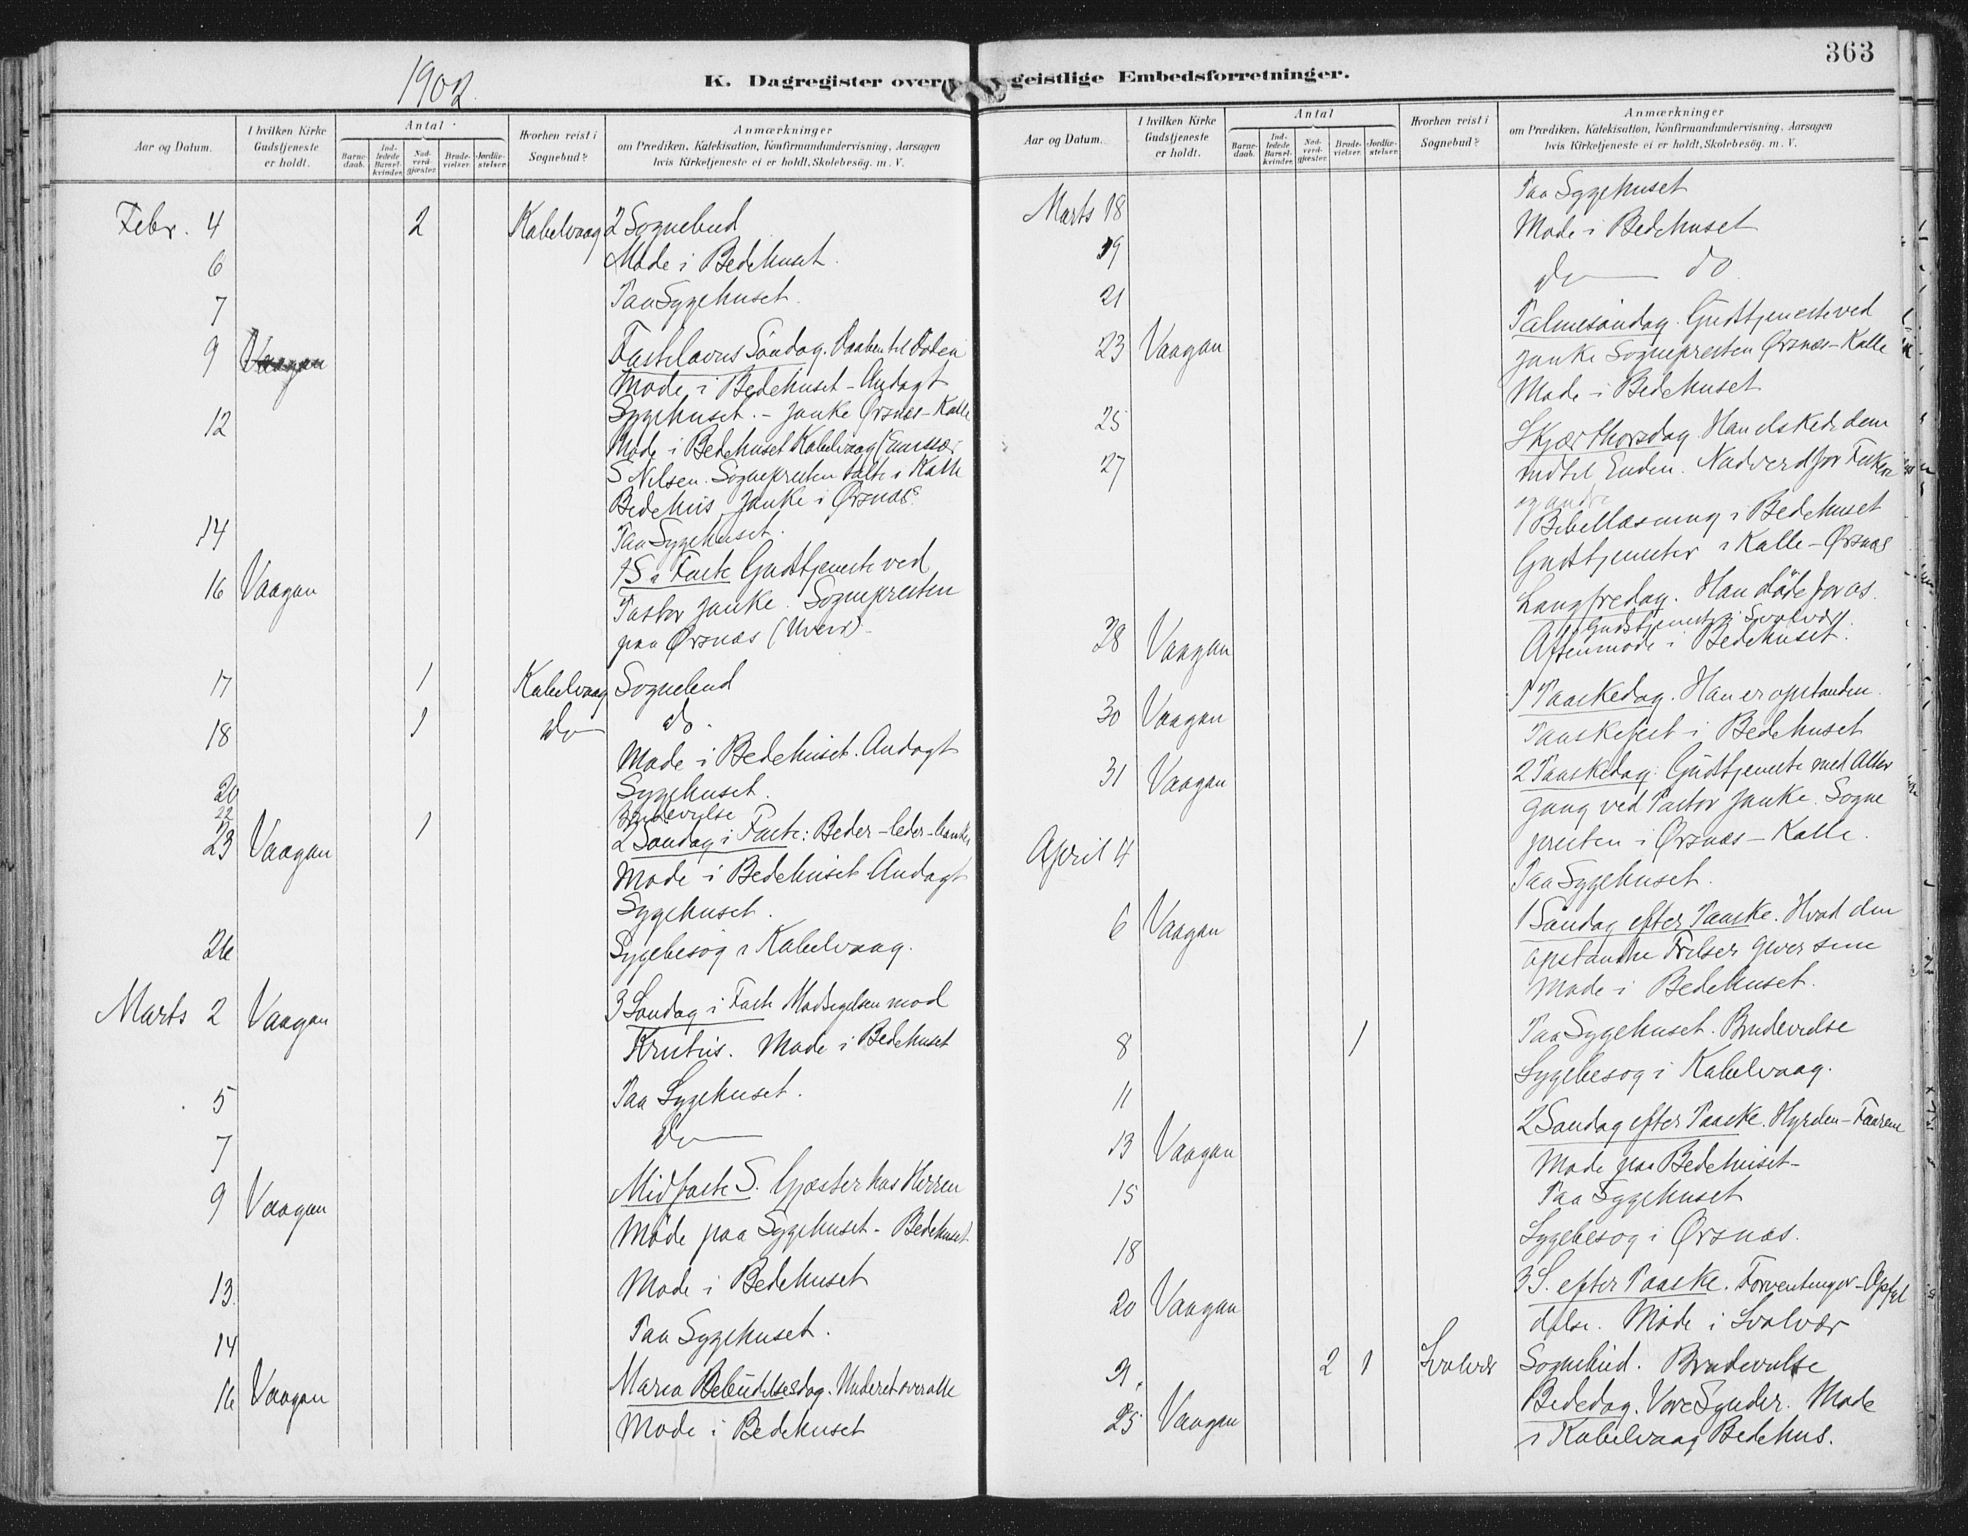 363
1902
K. Dagregister over geistlige Embedsforretninger.
Aar og Datum. I hvilken Kirke Gudstjeneste er holdt. Antal Barnedaab. Indledede Barselkvinder. Nadverdgjæster. Brudevielser. Jordfæstelser. Hvorhen reist i Sognebud? Anmærkninger om Prædiken, Katekisation, Konfirmandundervisning, Aarsagen hvis Kirketjeneste ei er holdt, Skolebesög. m. V.
Febr. 4 2 Kabelvaag 2 Sognebud
6 Möde i Bedehuset.
7 Paa Sygehuset.
9 Vaagan Fastelavns Söndag. Daaben til Döden
Möde i Bedehuset - Andagt
Sygehuset. - Janke Ørsnæs - Kalle
12 Möde i Bedehuset Kabelvaag
S Nilsen. Sognepresten talte i Kalle
Bedehus Janke i Ørsnæs
14 Paa Sygehuset.
16 Vaagan 1 S i Faste Gudstjeneste ved
Pastor Janke. Sognepresten
paa Ørsnæs (Uveir)
17 1 Kabelvaag Sognebud
18 1 do do.
Möde i Bedehuset. Andagt
20 Sygehuset.
22 Brudevielse
23 Vaagan 1 2 Söndag i Faste: Beder - leder - banker
Möde i Bedehuset Andagt
Sygehuset.
26 Sygebesög i Kabelvaag.
Marts 2 Vaagan 3 Söndag i Faste Modsigelsen mod
Kristus. Möde i Bedehuset
5 Paa Sygehuset.
7 do
9 Vaagan Midfaste S. Gjæster hos Herren
Möde paa Sygehuset - Bedehuset
13 Möde i Bedehuset
14 Paa Sygehuset.
16 Vaagan Maria Bebudelsesdag. Underet over alle
Möde i Bedehuset
Aar og Datum. I hvilken Kirke Gudstjeneste er holdt. Antal Barnedaab. Indledede Barselkvinder. Nadverdgjæster. Brudevielser. Jordfæstelser. Hvorhen reist i Sognebud? Anmærkninger om Prædiken, Katekisation, Konfirmandundervisning, Aarsagen hvis Kirketjeneste ei er holdt, Skolebesög. m. V.
Paa Sygehuset
Marts 18 Möde i Bedehuset
19 do do
21
23 Vaagan Palmesöndag. Gudstjeneste ved
Janke Sognepresten Ørsnæs - Kalle
Möde i Bedehuset
25
27 Skjærthorsdag. Han elskede dem
indtil Enden. Nadverd for Fiskere
og andre
Bibellæsning i Bedehuset
Gudstjenester i Kalle - Ørsnæs
28 Vaagan Langfredag. Han döde for os.
Gudstjeneste i Svolvær
Aftenmöde i Bedehuset.
30 Vaagan 1 Paaskedag. Han er opstanden.
Paaskefest i Bedehuset
31 Vaagan 2 Paaskedag: Gudstjeneste med Alter
gang ved Pastor Janke. Sogne
presten i Ørsnæs - Kalle.
April 4 Paa Sygehuset.
6 Vaagan 1 Söndag efter Paaske. Hvad den
opstandne Frelser giver sine
Möde i Bedehuset.
8 1 Paa Sygehuset. Brudevielse
11 Sygebesog i Kabelvaag.
13 Vaagan 2 Söndag efter Paaske. Hyrden - Faarene
Möde paa Bedehuset -
15 Paa Sygehuset
18 Sygebesog i Ørsnæs.
20 Vaagan 3 S. efter Paaske. Forventninger - Opfyl
delse. Möde i Svolvær
21. 2 1 Svolvær Sognebud. Brudevielse
25 Vaagan Bededag. Vore Synder. Möde
i Kabelvaag Bedehus.